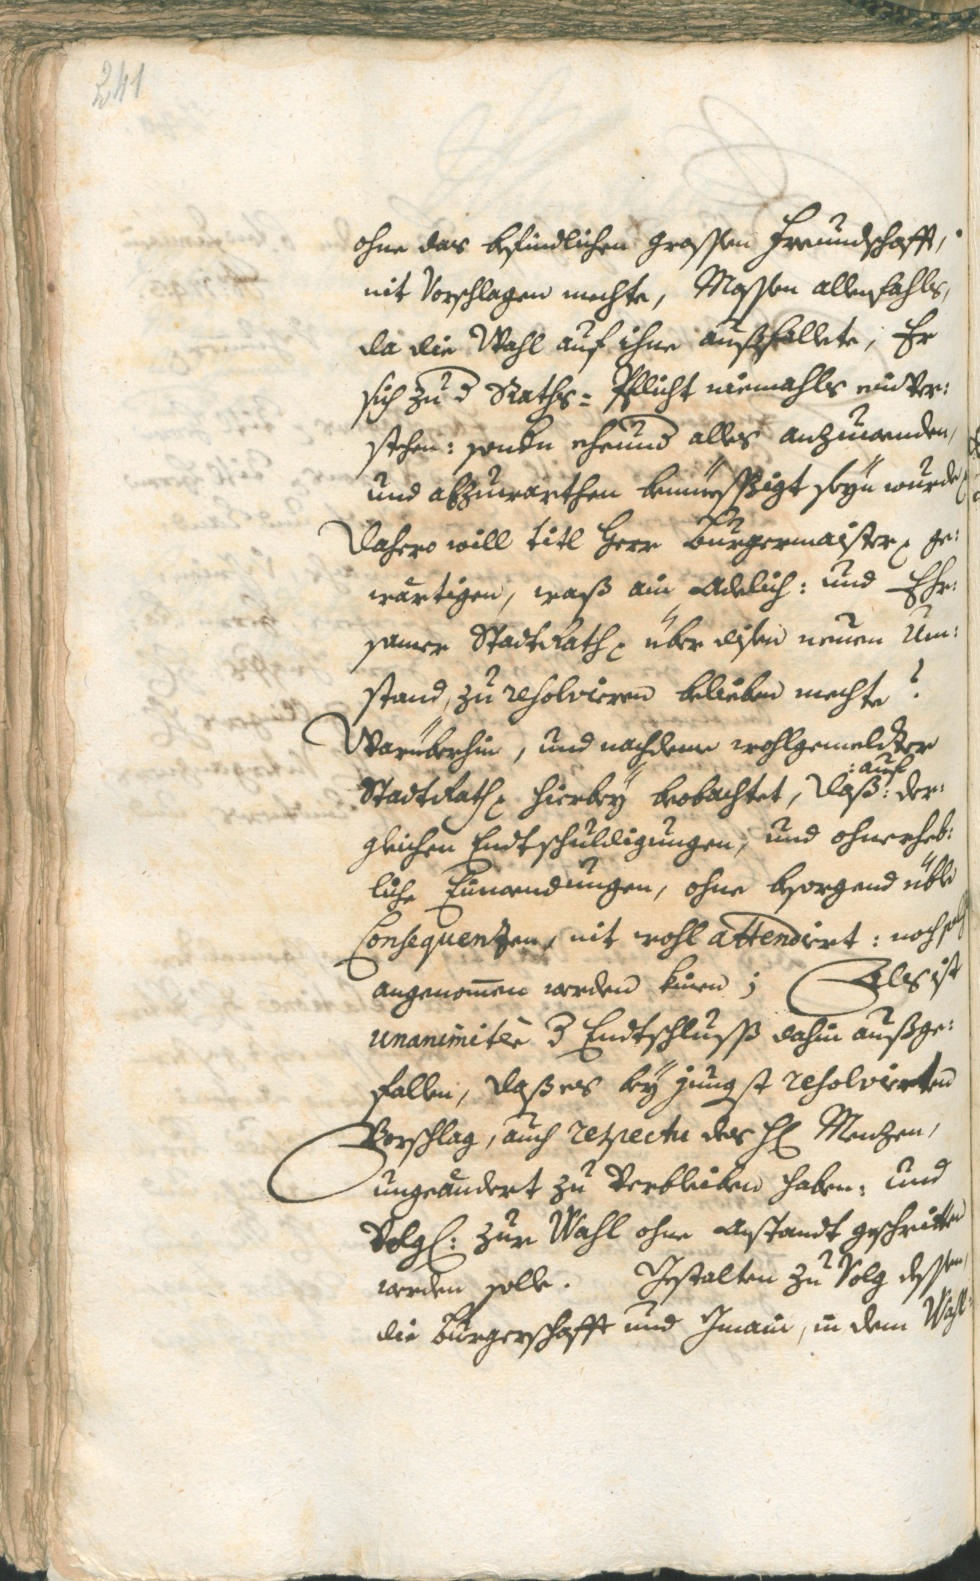 241
ohne das befindlichen grossen Freundschafft,
nit Vorschlagen mechte, Massen allenfahls,
da die Wahl auf ihne außfallete, Er
sich zu d Raths=Pflicht niemahls ein Ver:
stehen: sondern eheund alles anzuwenden,
und abzuwarthen bemüessigt seyn wurde
Dahero will titl Herr Burgermaister ge:
wärtigen, waß ain Adelich: und Ehr:
samer StadtRath über disen neuen Um:
stand, zu resolvieren belieben mechte?
Warüberhin, und nachdeme wohlgemeldter
:auf
StadtRath hierbey beobachtet, daß: der:
gleichen Endtschuldigungen, und ohnerheb:
liche Einwendungen, ohne besorgend üble
Consequentzen, nit wohl attendirt: noch
angenom̄en werden kinen; Als ist
unanimitèr d Endtschluss dahin außge:
fallen, daß es bey jungst resolvierten
Vorschlag, auch respectu des H: Menzen,
ungeändert zu Verbleiben haben: und
Volgl: zur Wahl ohne Anstandt geschritten
werden solle. Gestalten zu Volg dessen,
die Burgerschafft und Gmain, in dem Wahl=